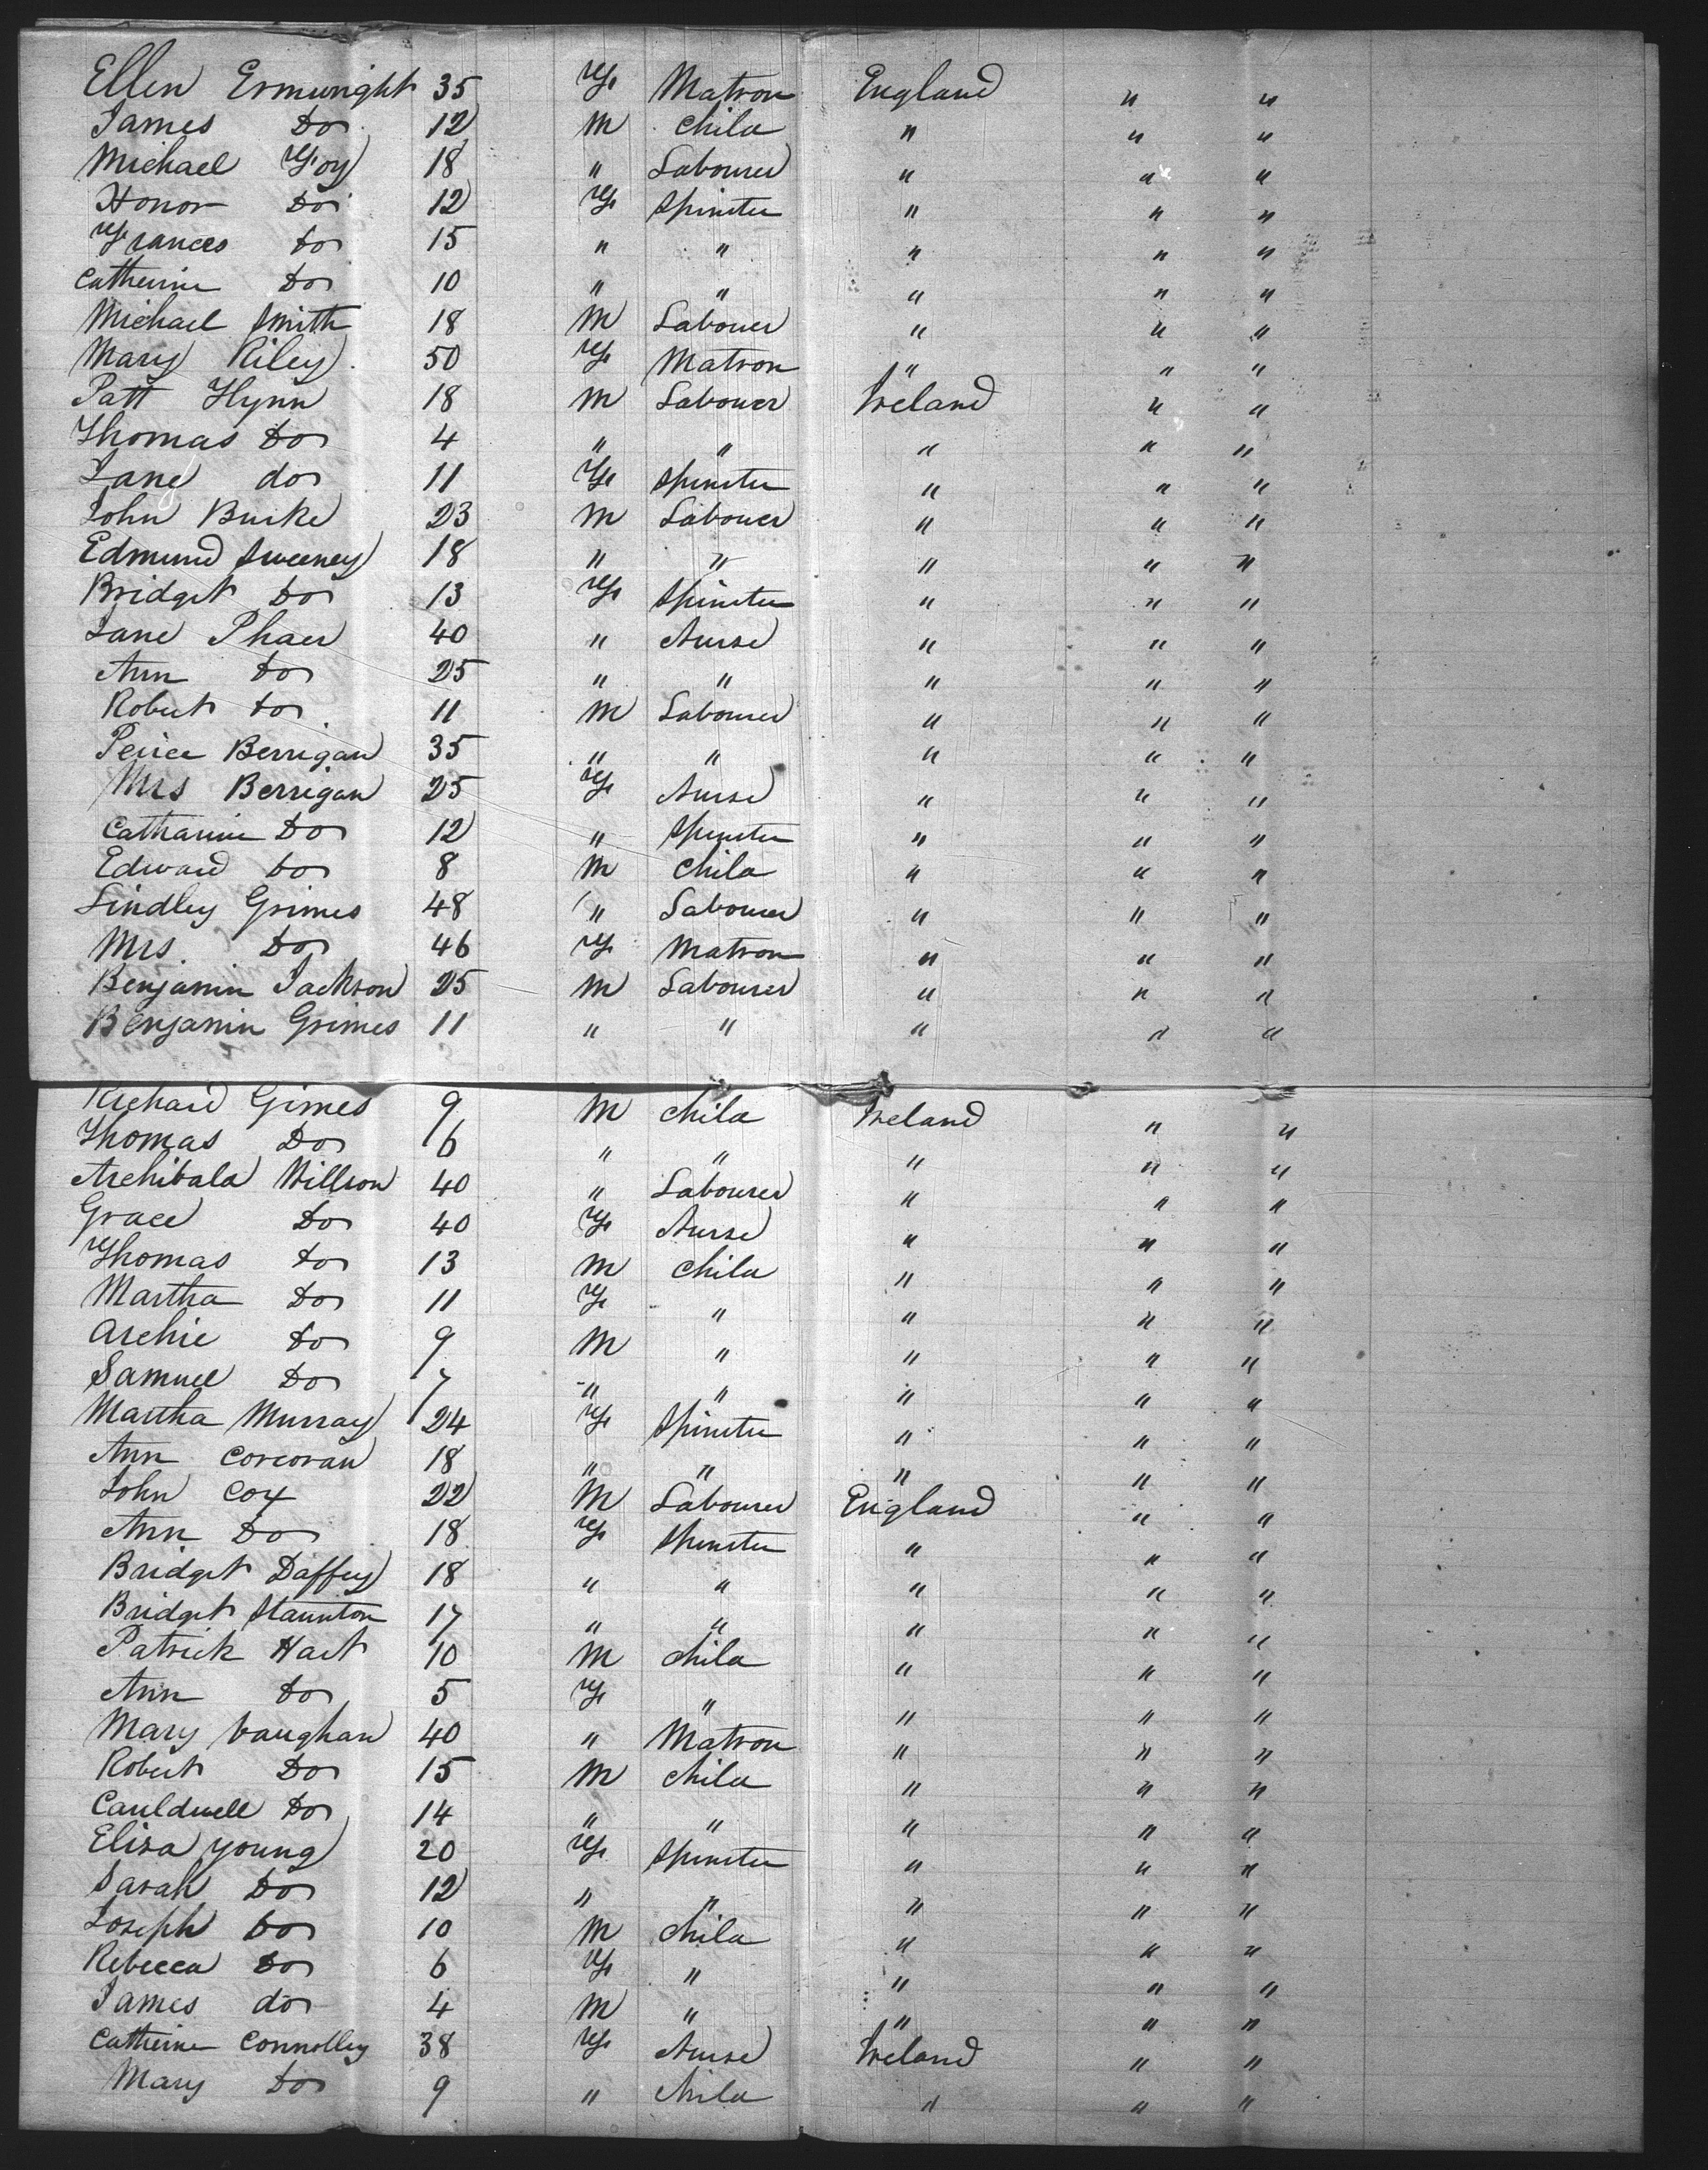 Ellen Ermwright 35 F Matron England " "
James Do 12 M Child " " "
Michael Foy 18 " Labourer " " "
Honor Do 12 F Spinster " " "
Frances Do 15 " " " " "
Catherine Do 10 " " " " "
Michael Smith 18 M Labouer " " "
Mary Riley 50 F Matron " " "
Patt Flynn 18 M Labouer Ireland " "
Thomas Do 4 " " " " "
Jane do 11 F Spinster " " "
John Burke 23 M Labouer " " "
Edmund Sweeney 18 " " " " "
Bridget Do 13 F Spinster " " "
Jane Phaer 40 " Nurse " " "
Ann Do 25 " " " " "
Robert Do 11 M Labourer " " "
Peirce Berrigan 35 " " " " "
Mrs Berrigan 25 F Nurse " " "
Catharine Do 12 " Spinster " " "
Edward Do 8 M Child " " "
Lindley Grimes 48 " Labourer " " "
Mrs. Do 46 F Matron " " "
Benjamin Jackson 25 M Labourer " " "
Benjamin Grimes 11 " " " " "
Richard Gimes 9 M Child Ireland " "
Thomas Do 6 " " " " "
Archibald Willson 40 " Labourer " " "
Grace Do 40 F Nurse " " "
Thomas Do 13 M Child " " "
Martha Do 11 F " " " "
Archie Do 9 M " " " "
Samuel Do 7 " " " " "
Martha Murray 24 F Spinster " " "
Ann Corcoran 18 " " " " "
John Cox 22 M Labourer England " "
Ann Do 18 F Spinster " " "
Bridget Daffey 18 " " " " "
Bridget Staunton 17 " " " " "
Patrick Hart 10 M Child " " "
Ann Do 5 F " " " "
Mary Vaughan 40 " Matron " " "
Robert Do 15 M Child " " "
Cauldwell Do 14 " " " " "
Eliza Young 20 F Spinster " " "
Sarah Do 12 " " " " "
Joseph Do 10 M Child " " "
Rebecca Do 6 F " " " "
James do 4 M " " " "
Catherine Connolley 38 F Nurse Ireland " "
Mary Do 9 " Child " " "